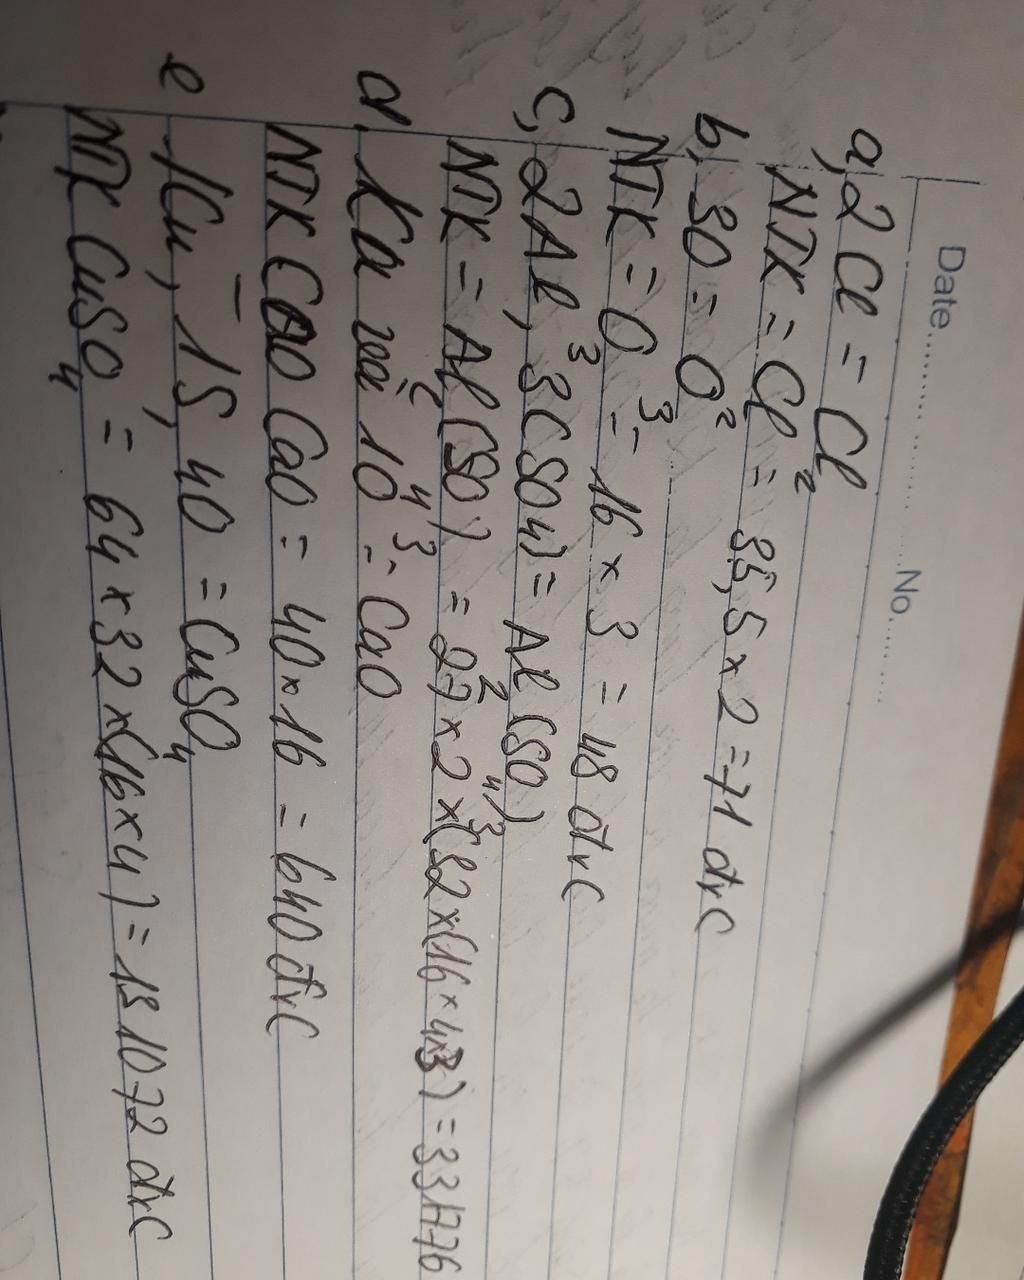 Date.......... No.......
a, 2Cl = Cl₂
NTK = Cl₂ = 35,5 x 2 = 71 đvC
b, 3O = O₃
NTK = O₃ = 16 x 3 = 48 đvC
c, 2Al, 3(SO4) = Al₂(SO₄)₃
NTK = Al₂(SO₄)₃ = 27 x 2 x (32 x (16 x 4x3) = 331776
d, 1Ca với 1O = CaO
NTK CaO CaO = 40 x 16 = 640 đvC
e 1Cu, 1S, 4O = CuSO₄
NTK CuSO₄ = 64 x 32 x (16 x 4) = 131072 đvC